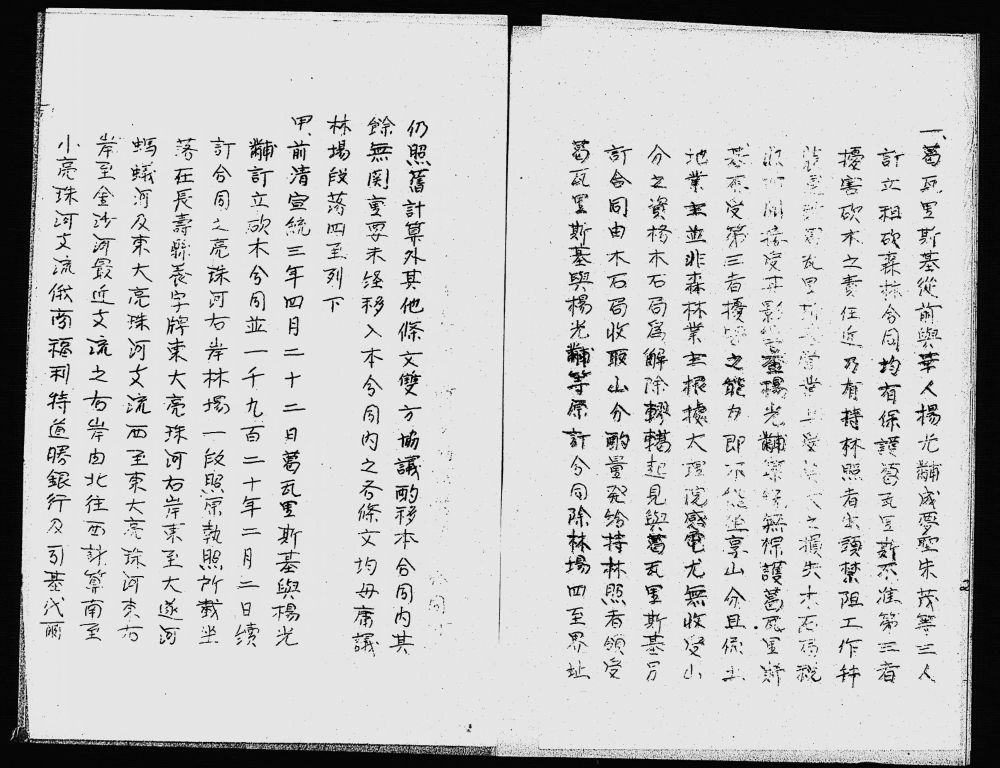 一、葛瓦里斯基從前與華人楊光黼成夢聖朱茂等三人
訂立租砍森林合同均有保護葛瓦里斯不准第三者
擾害砍木之責任近乃有持林照者出頭禁阻工作林
葛瓦里 之損失木石局稅
間接受其影響查楊光黼 無保護葛瓦里斯
基不受第三者擾害之能力即不能坐享山分且係土
地業主並非森林業主根據大理院感電尤無收受山
分之資格木石局為解除轇轕起見與葛瓦里斯基另
訂合同由木石局收取山分酌量發給持林照者領受
葛瓦里斯基與楊光黼等原訂合同除林場四至界址
仍照舊計算外其他條文雙方協議酌移本合同內其
餘無関重要未經移入本合同內之各條文均毋庸議
林場段落四至列下
甲、前清宣統三年四月二十二日葛瓦里斯基與楊光
黼訂立砍木合同並一千九百二十年二月二日續
訂合同之亮珠河右岸林場一段照原執照所載坐
落在長壽縣長字牌東大亮珠河右岸東至大遂河
螞蟻河及東大亮珠河支流西至東大亮珠河夾右
岸至金沙河最近支流之右岸由北往西計算南至
小亮珠河支流俄商福利特道勝銀行及列基代爾
2